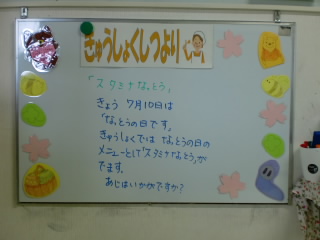 きゅうしょくしつより
「スタミナなっとう」
きょう 7月10日は
「なっとうの日です。
きゅうしょくでは なっとうの日の
メニューとして「スタミナなっとう」が
でます。
あじはいかがですか?